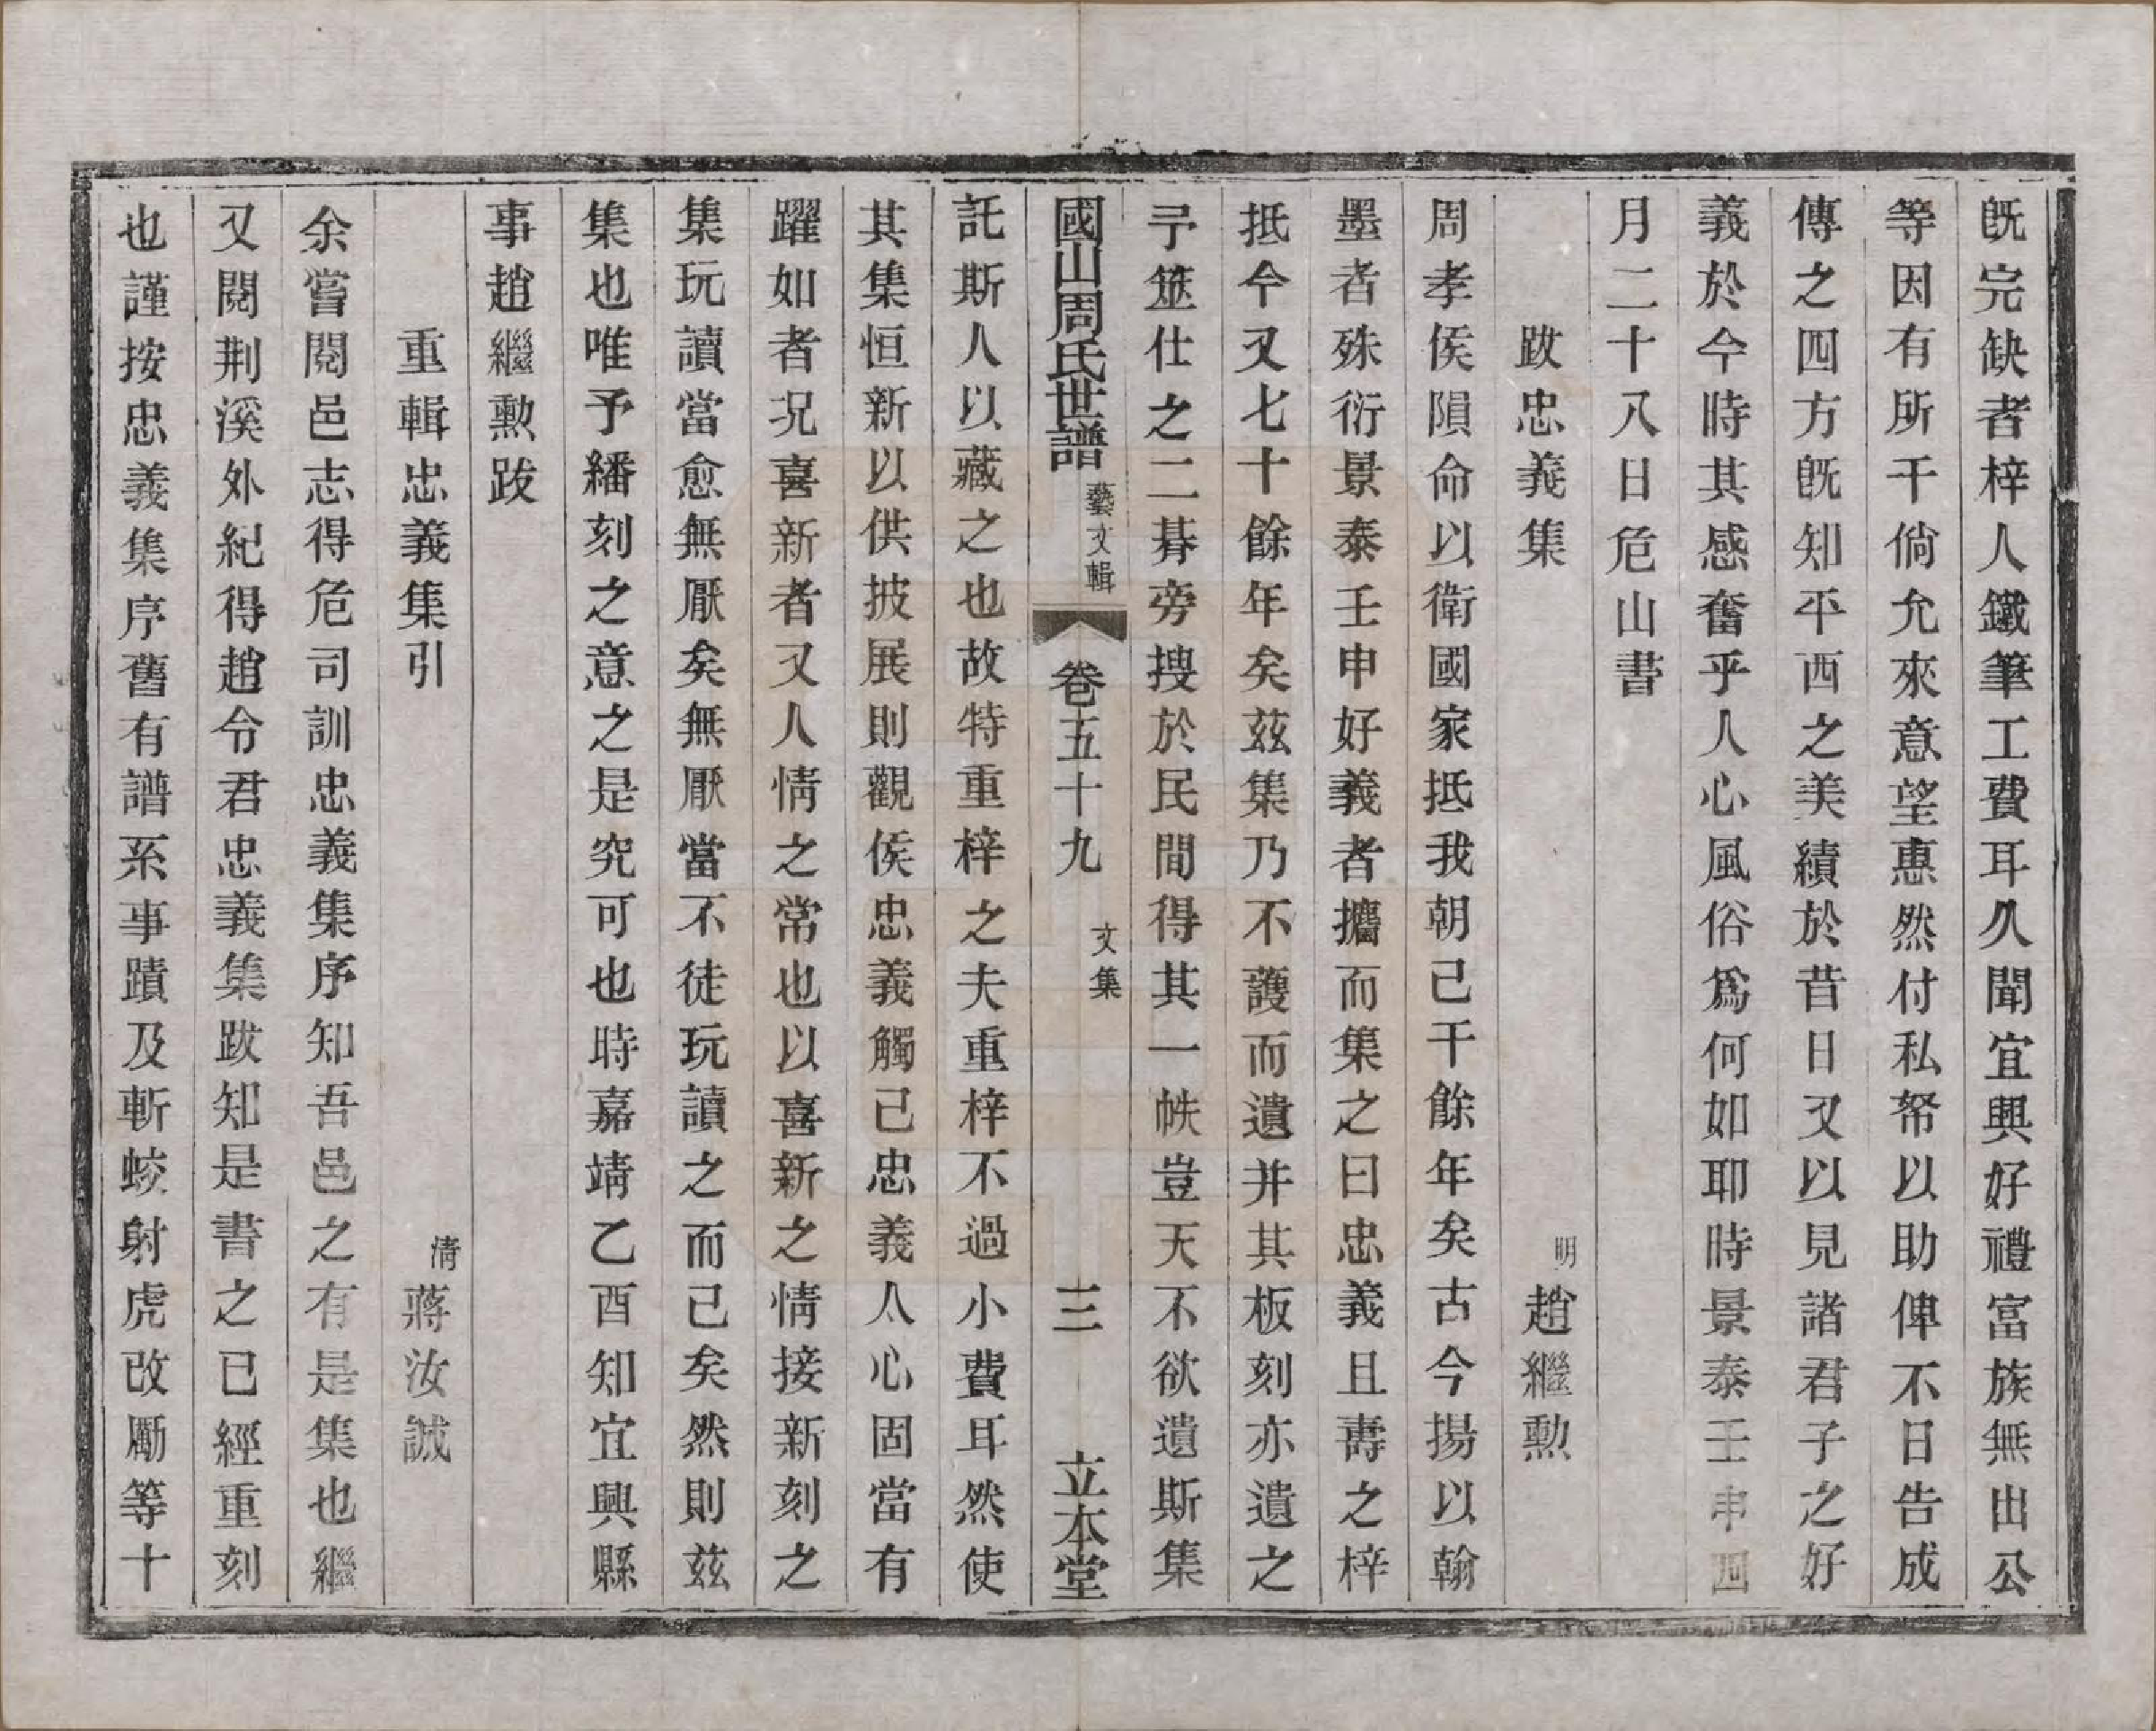 既完缺者梓人鐵筆工費耳久聞宜興好禮富族無出公
等因有所干倘允來意望惠然付私帑以助俾不日告成
傳之四方旣知平西之美績於昔日又以見諸君子之好
義於今時其感奮乎人心風俗爲何如耶時景泰壬申四
月二十八日危山書
跋忠義集 明 趙繼勲
周孝侯隕命以衛國家抵我朝己千餘年矣古今揚以翰
墨者殊衍景泰壬申好義者攟而集之曰忠義且壽之梓
抵今又七十餘年矣兹集乃不護而遺并其板刻亦遺之
予筮仕之二朞旁搜於民間得其一帙豈天不欲遺斯集
國山周氏世譜 藝文輯 卷五十九 文集 三 立本堂
託斯人以藏之也故特重梓之夫重梓不過小費耳然使
其集恒新以供披展則觀侯忠義觸己忠義人心固當有
躍如者况喜新者又人情之常也以喜新之情接新刻之
集玩讀當愈無厭矣無厭當不徒玩讀之而己矣然則兹
集也唯予繙刻之意之是究可也時嘉靖乙酉知宜興縣
事趙繼勲跋
重輯忠義集引 清 蔣汝誠
余嘗閱邑志得危司訓忠義集序知吾邑之有是集也繼
又閱荆溪外紀得趙令君忠義集跋知是書之已經重刻
也謹按忠義集序舊有譜系事蹟及斬蛟射虎改勵等十